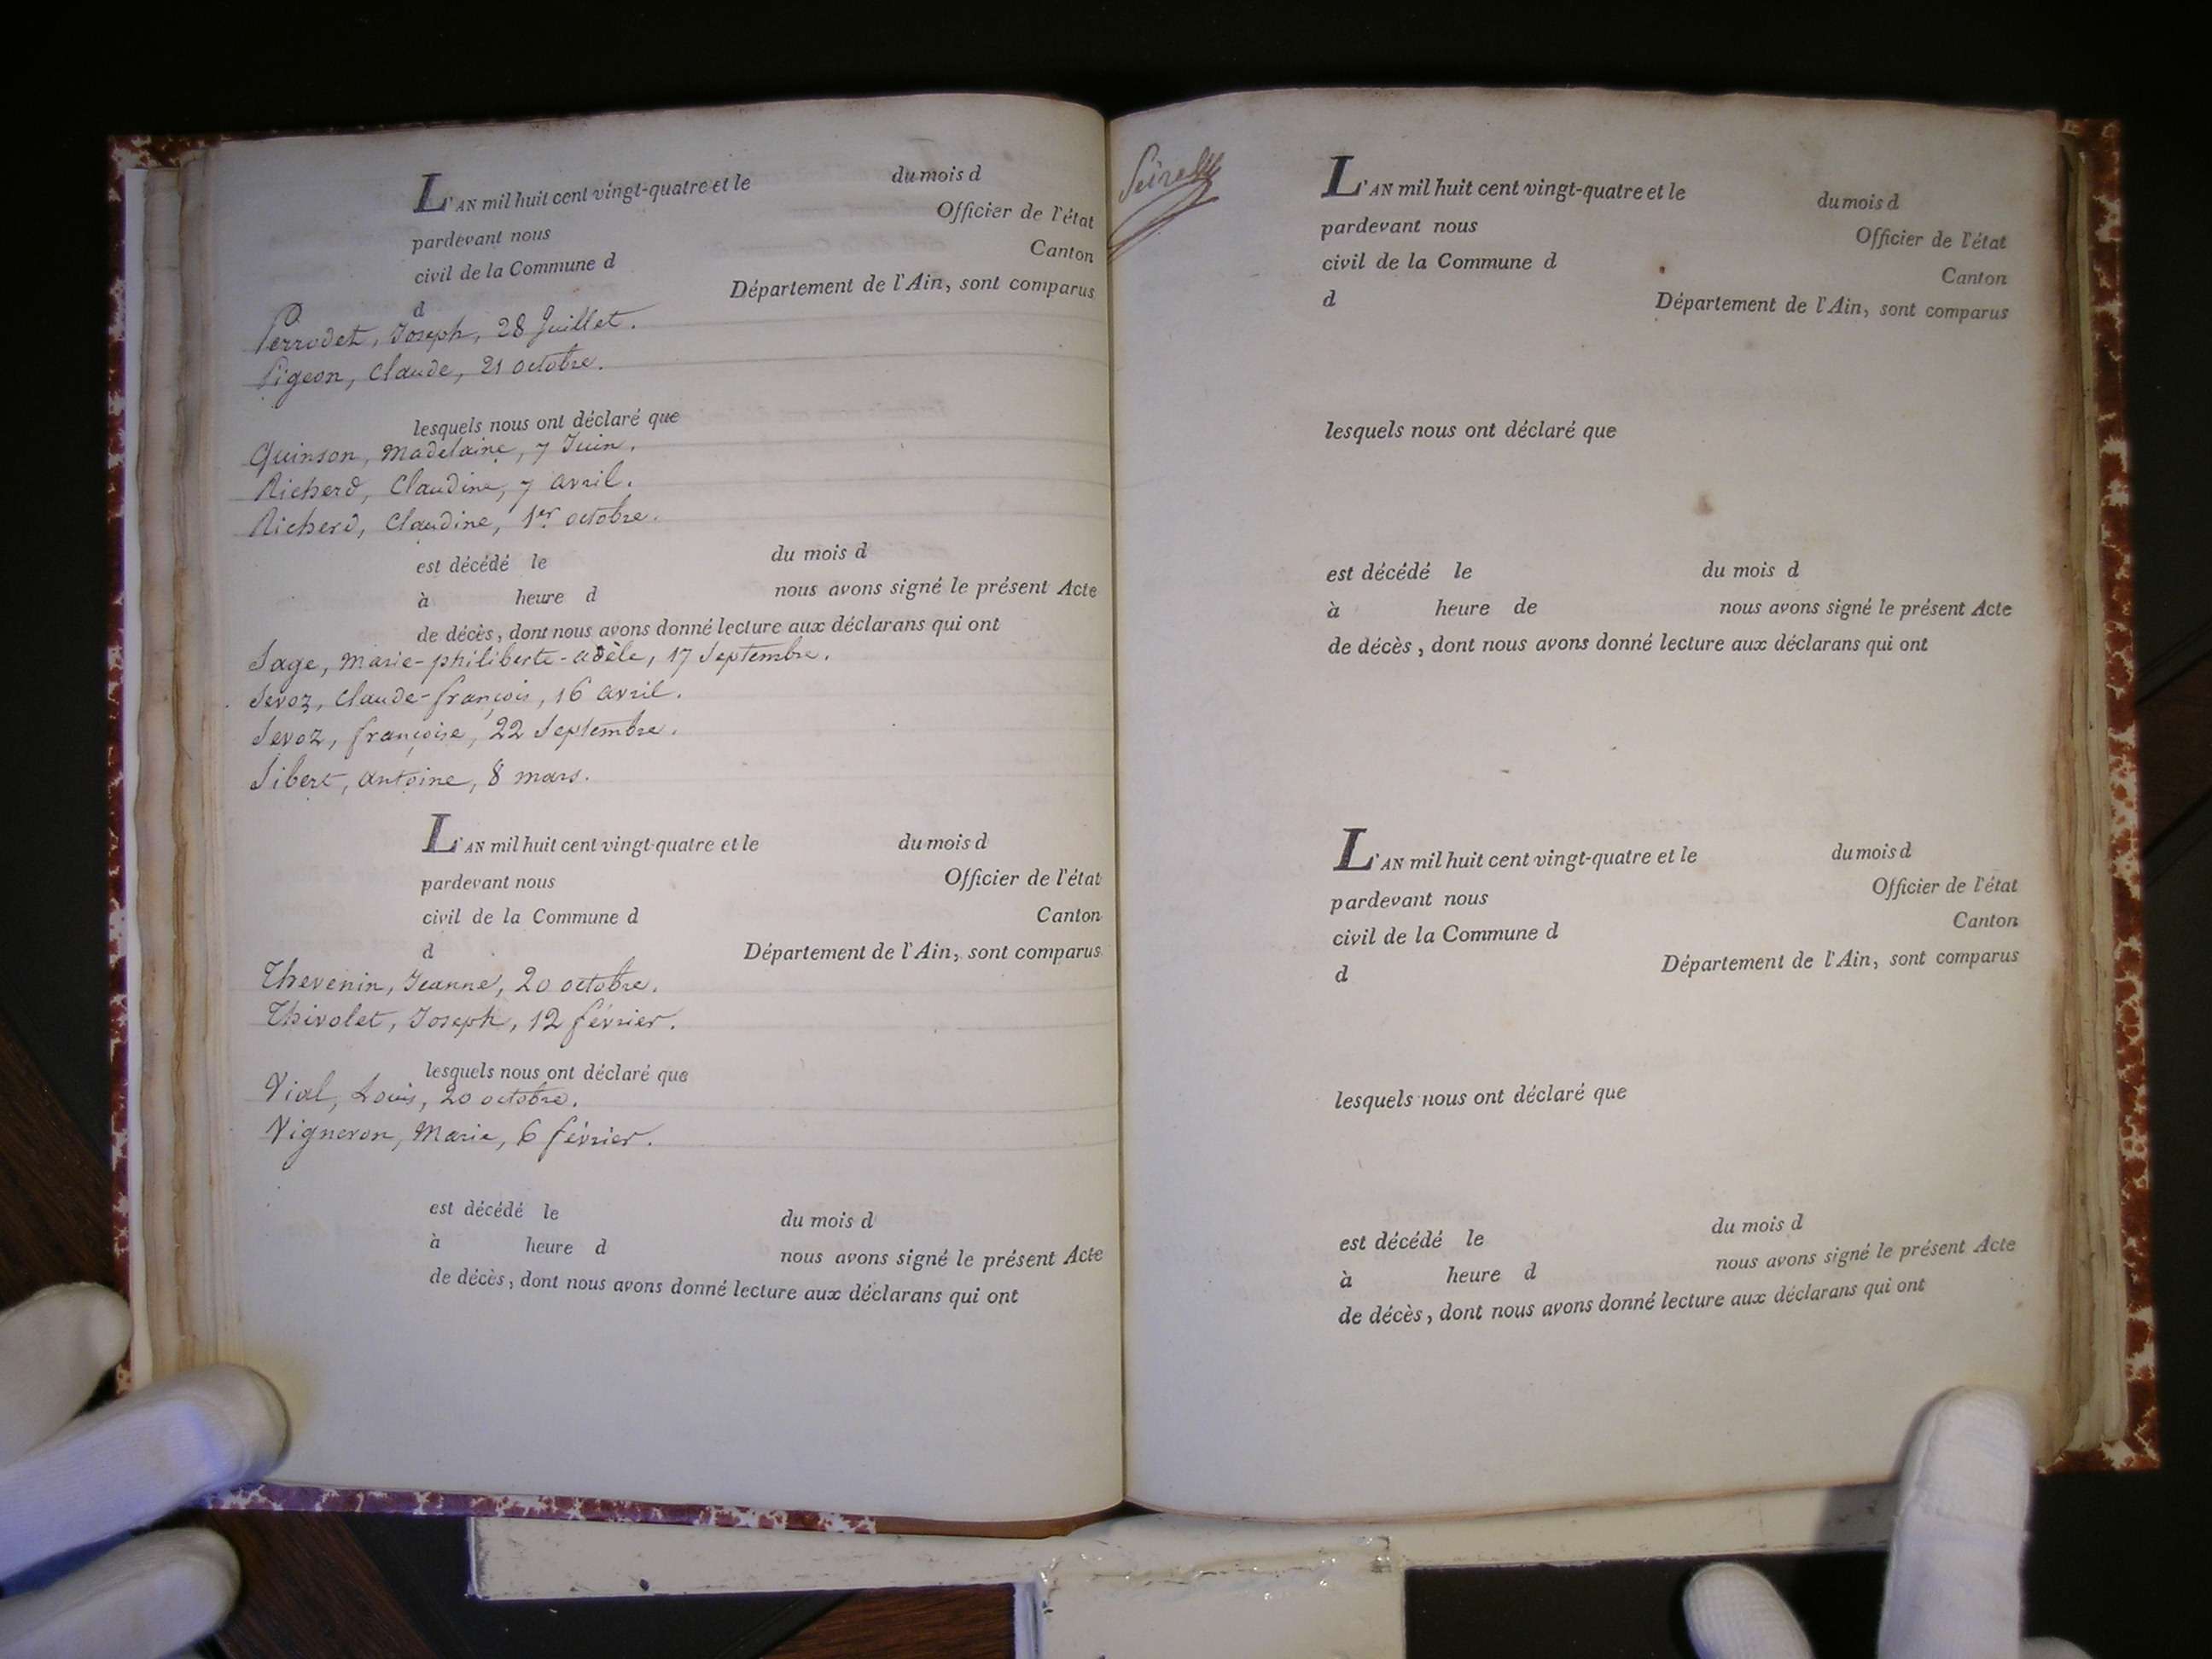 L'AN mil huit cent vingt-quatre et le du mois d
pardevant nous Officier de l'état
civil de la Commune d Canton
d Département de l'Ain, sont comparus
Perrodet, Joseph, 28 Juillet.
Pigeon, Claude, 21 octobre.
lesquels nous ont déclaré que
Quinson, Madelaine, 7 Juin.
Richerd, Claudine, 7 avril.
Richerd, Claudine, 1er octobre.
est décédé le du mois d
à heure d nous avons signé le présent Acte
de décès, dont nous avons donné lecture aux déclarans qui ont
Sage, marie-philiberte-adèle, 17 Septembre.
Sevoz, Claude-françois, 16 avril.
Sevoz, françoise, 22 Septembre.
Sibert, antoine, 8 mars.
L'AN mil huit cent vingt-quatre et le du mois d
pardevant nous Officier de l'état
civil de la Commune d Canton
d Département de l'Ain, sont comparus
Thevenin, Jeanne, 20 octobre.
Thivolet, Joseph, 12 février.
lesquels nous ont déclaré que
Vial, Louis, 20 octobre.
Vigneron, Marie, 6 février.
est décédé le du mois d
à heure d nous avons signé le présent Acte
de décès, dont nous avons donné lecture aux déclarans qui ont
L'AN mil huit cent vingt-quatre et le du mois d
pardevant nous Officier de l'état
civil de la Commune d Canton
d Département de l'Ain, sont comparus
lesquels nous ont déclaré que
est décédé le du mois d
à heure de nous avons signé le présent Acte
de décès, dont nous avons donné lecture aux déclarans qui ont
L'AN mil huit cent vingt-quatre et le du mois d
pardevant nous Officier de l'état
civil de la Commune d Canton
d Département de l'Ain, sont comparus
lesquels nous ont déclaré que
est décédé le du mois d
à heure d nous avons signé le présent Acte
de décès, dont nous avons donné lecture aux déclarans qui ont